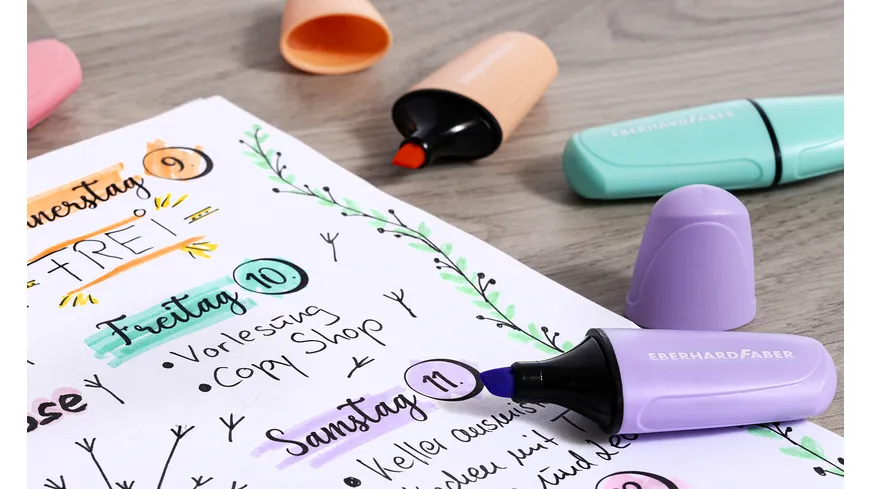 nnerstag 9.
FREI
Freitag 10.
• Vorlesung
• Copy Shop
sse
Samstag 11.
• Keller ausmis
mit
und
EBERHARD FABER
EBERHARD FABER